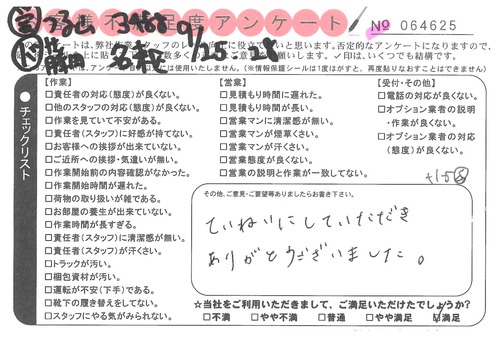 お客様不満足度アンケート
No 064625
アンケートは、弊社作業スタッフのレベル
否定的なアンケートになりますので、
お願いします。✓印は、いくつでも結構です。
アンケート以外には使用いたしません。(※情報保護シールは1度はがすと、再度貼りなおすことはできません)
● チェックリスト
【作業】
□責任者の対応(態度)が良くない。
□他のスタッフの対応(態度)が良くない。
□作業を見ていて不安がある。
□責任者(スタッフ)に好感が持てない。
□お客様への挨拶が出来ていない。
□ご近所への挨拶・気遣いが無い。
□作業開始前の内容確認がなかった。
□作業開始時間が遅れた。
□荷物の取り扱いが雑である。
□お部屋の養生が出来ていない。
□作業時間が長すぎる。
□責任者(スタッフ)に清潔感が無い。
□責任者(スタッフ)が汗くさい。
□トラックが汚い。
□梱包資材が汚い。
□運転が不安(下手)である。
□靴下の履き替えをしてない。
□スタッフにやる気がみられない。
【営業】
□見積もり時間に遅れた。
□見積もり時間が長い。
□営業マンに清潔感が無い。
□営業マンが煙草くさい。
□営業マンが汗くさい。
□営業態度が良くない。
□営業の説明と作業が一致してない。
【受付・その他】
□電話の対応が良くない。
□オプション業者の説明・作業が良くない。
□オプション業者の対応(態度)が良くない。
その他、ご意見・ご要望等ありましたらお書き下さい。
ていねいにしていただき
ありがとうございました。
☆当社をご利用いただきまして、ご満足いただけたでしょうか?
□不満 □やや不満 □普通 □やや満足 ☑満足